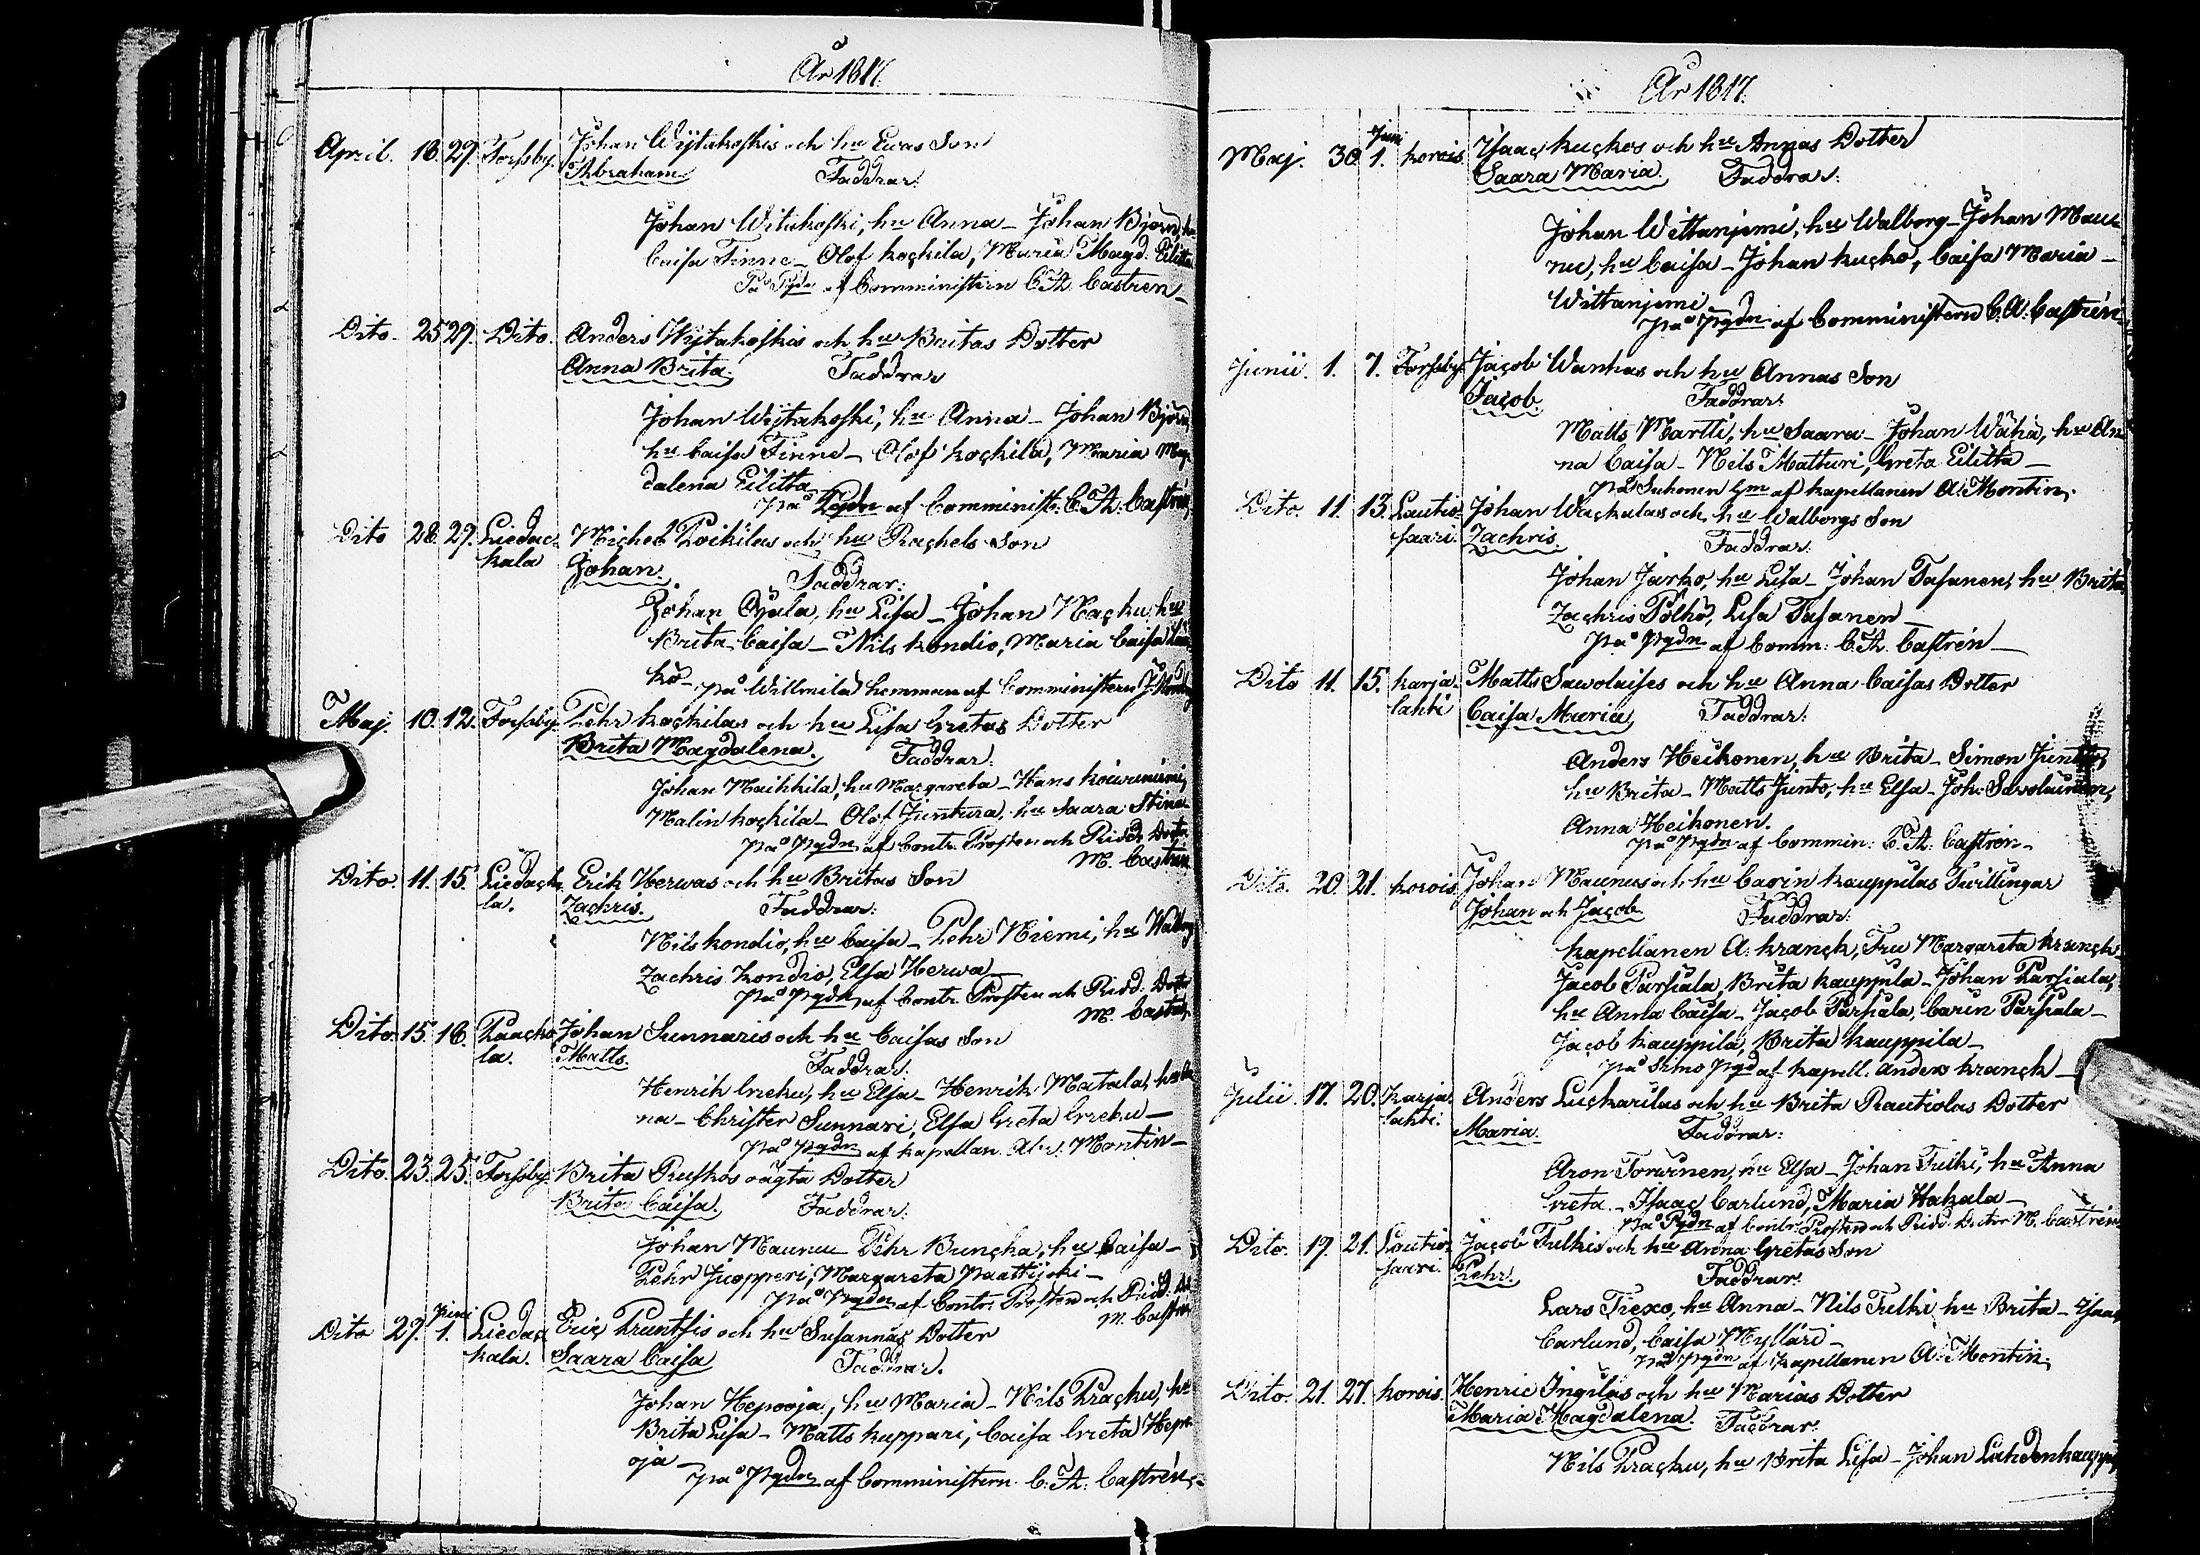 År 1817.
April. 18. 29. Torfsby. Johan Wijtakoskis och hu Ewas Son
Abraham Faddrar.
Johan Witakoski, hu Anna – Johan Björn, hu
Caisa Finne – Olof Kockila, Maria Magd. Eilitta
På Pgdn af Comministern C. A. Castren –
Dito. 25 29. Dito. Anders Wijtakoskis och hu Britas Dotter
Anna Brita. Faddrar
Johan Wijtakoski, hu Anna – Johan Björn,
hu Caisa Finne – Olof Kockila, Maria Mag-
dalena Eilitta
på Pgdn af Comminist. C. A. Castrén,
Dito 28. 29. Liedac- Michel Poikilas och hu Rachels Son
kala Johan. Faddrar:
Johan Ojala, hu Lisa – Johan Macku, hu
Brita Caisa – Nils Kondio, Maria Caisa
kö – på Willmila hemman af Comministern J.
Maj. 10. 12. Torfsby. Pehr Kockilas och hu Lisa Gretas Dotter
Brita Magdalena. Faddrar.
Johan Maihkila, hu Margareta – Hans Koiwuniemi,
Malin Kockila – Olof Juntura, hu Saara Stina
på Pgdn af Contr. Prosten och Ridd. Doctr.
M. Castrén
Dito 11. 15. Liedacka- Erik Herwas och hu Britas Son
la. Zachris. Faddrar:
Nils Kondio, hu Caisa – Pehr Niemi, hu Walborg
Zachris Kondio, Elsa Herwa –
på Pgdn af Contr. Prosten och Ridd. Doctr
M. Castrén
Dito. 15. 16. Raacko- Johan Sunnaris och hu Caisas Son
la. Matts. Faddrar.
Henrik Greku, hu Elsa – Henrik Matala, hu An-
na – Christer Sunnari, Elsa Greta Greku –
På Pgdn af Kapellan. Al: Montin –
Dito. 23. 25. Torfsby. Brita Ruskos oägta Dotter
Brita Caisa. Faddrar.
Johan Maunu – Pehr Buncka, hu Caisa –
Pehr Juopperi, Margareta Paattijoki –
på Pgdn af Contr. Prosten och Ridd.
M. Castrén
Dito 29. Juni 1. Liedac- Eric Pruntsis och hu Susannas Dotter
kala. Saara Caisa Faddrar.
Johan Hepooja, hu Maria – Nils Pracku, hu
Brita Lisa – Matts Kuppari, Caisa Greta Hepo-
oja –
på Pgdn af Comministern C. A. Castrén,
År 1817.
Maj. 30. Juni 1. Korois Isaac Kuckos och hu Annas Dotter
Saara Maria. Faddrar.
Johan Wittaniemi, hu Walborg – Johan Mau-
nu, hu Caisa – Johan Kucko, Caisa Maria –
Wittaniemi –
på Pgdn af Comministern C. A. Castrén
Junii. 1. 7. Torfsby. Jacob Wanhas och hu Annas Son
Jacob. Faddrar.
Matts Martti, hu Saara – Johan Wähä, hu An-
na Caisa – Nils Matturi, Greta Eilitta –
på Suhonen Hm af Kapellanen A. Montin.
Dito. 11. 13. Lautio- Johan Wackulas och hu Walborgs Son
saari Zachris. Faddrar.
Johan Jarko, hu Lisa – Johan Tasanen, hu Brita
Zachris Pölhö, Lisa Tasanen –
på Pgdn af Comm. C. A. Castrén –
Dito 11. 15. Karja- Matts Sawolaises och hu Anna Caisas Dotter
lahti Caisa Maria. Faddrar.
Anders Heikonen, hu Brita – Simon Junto,
hu Brita – Matts Junto, hu Elsa – Joh. Sawolainen,
Anna Heikonen.
på Pgdn af Commin. C. A. Castrén –
Dito. 20. 21. Korois. Johan Maunus och hu Carin Kauppilas Twillingar
Johan och Jacob. Faddrar.
Kapellanen A. Kranck, Fru Margareta Kranck
Jacob Parsiala, Brita Kauppila – Johan Parsiala,
hu Anna Caisa – Jacob Parsiala, Carin Parsiala –
Jacob Kauppila, Brita Kauppila –
på Simo Pgd af Kapell. Anders Kranck –
Julii. 17. 20. Karja- Anders Luckarilas och hu Brita Rautiolas Dotter
lahti. Maria. Faddrar.
Aron Torwinen, hu Elsa – Johan Tulki, hu Anna
Greta – Isaac Carlund, Maria Hakala –
På Pgdn af Contr. Prosten och Ridd. Doctor M. Castrén
Dito. 19. 21. Lautio- Jacob Tulkis och hu Anna Gretas Son
saari. Pehr. Faddrar.
Lars Tiexo, hu Anna – Nils Tulki hu Brita – Isaac
Carlund, Caisa Mylläri –
på Pgdn af Kapellanen A. Montin,
Dito. 21. 27. Korois. Henric Ingilas och hu Marias Dotter
Maria Magdalena. Faddrar.
Nils Pracku, hu Brita Lisa – Johan Lahdenkauppi,